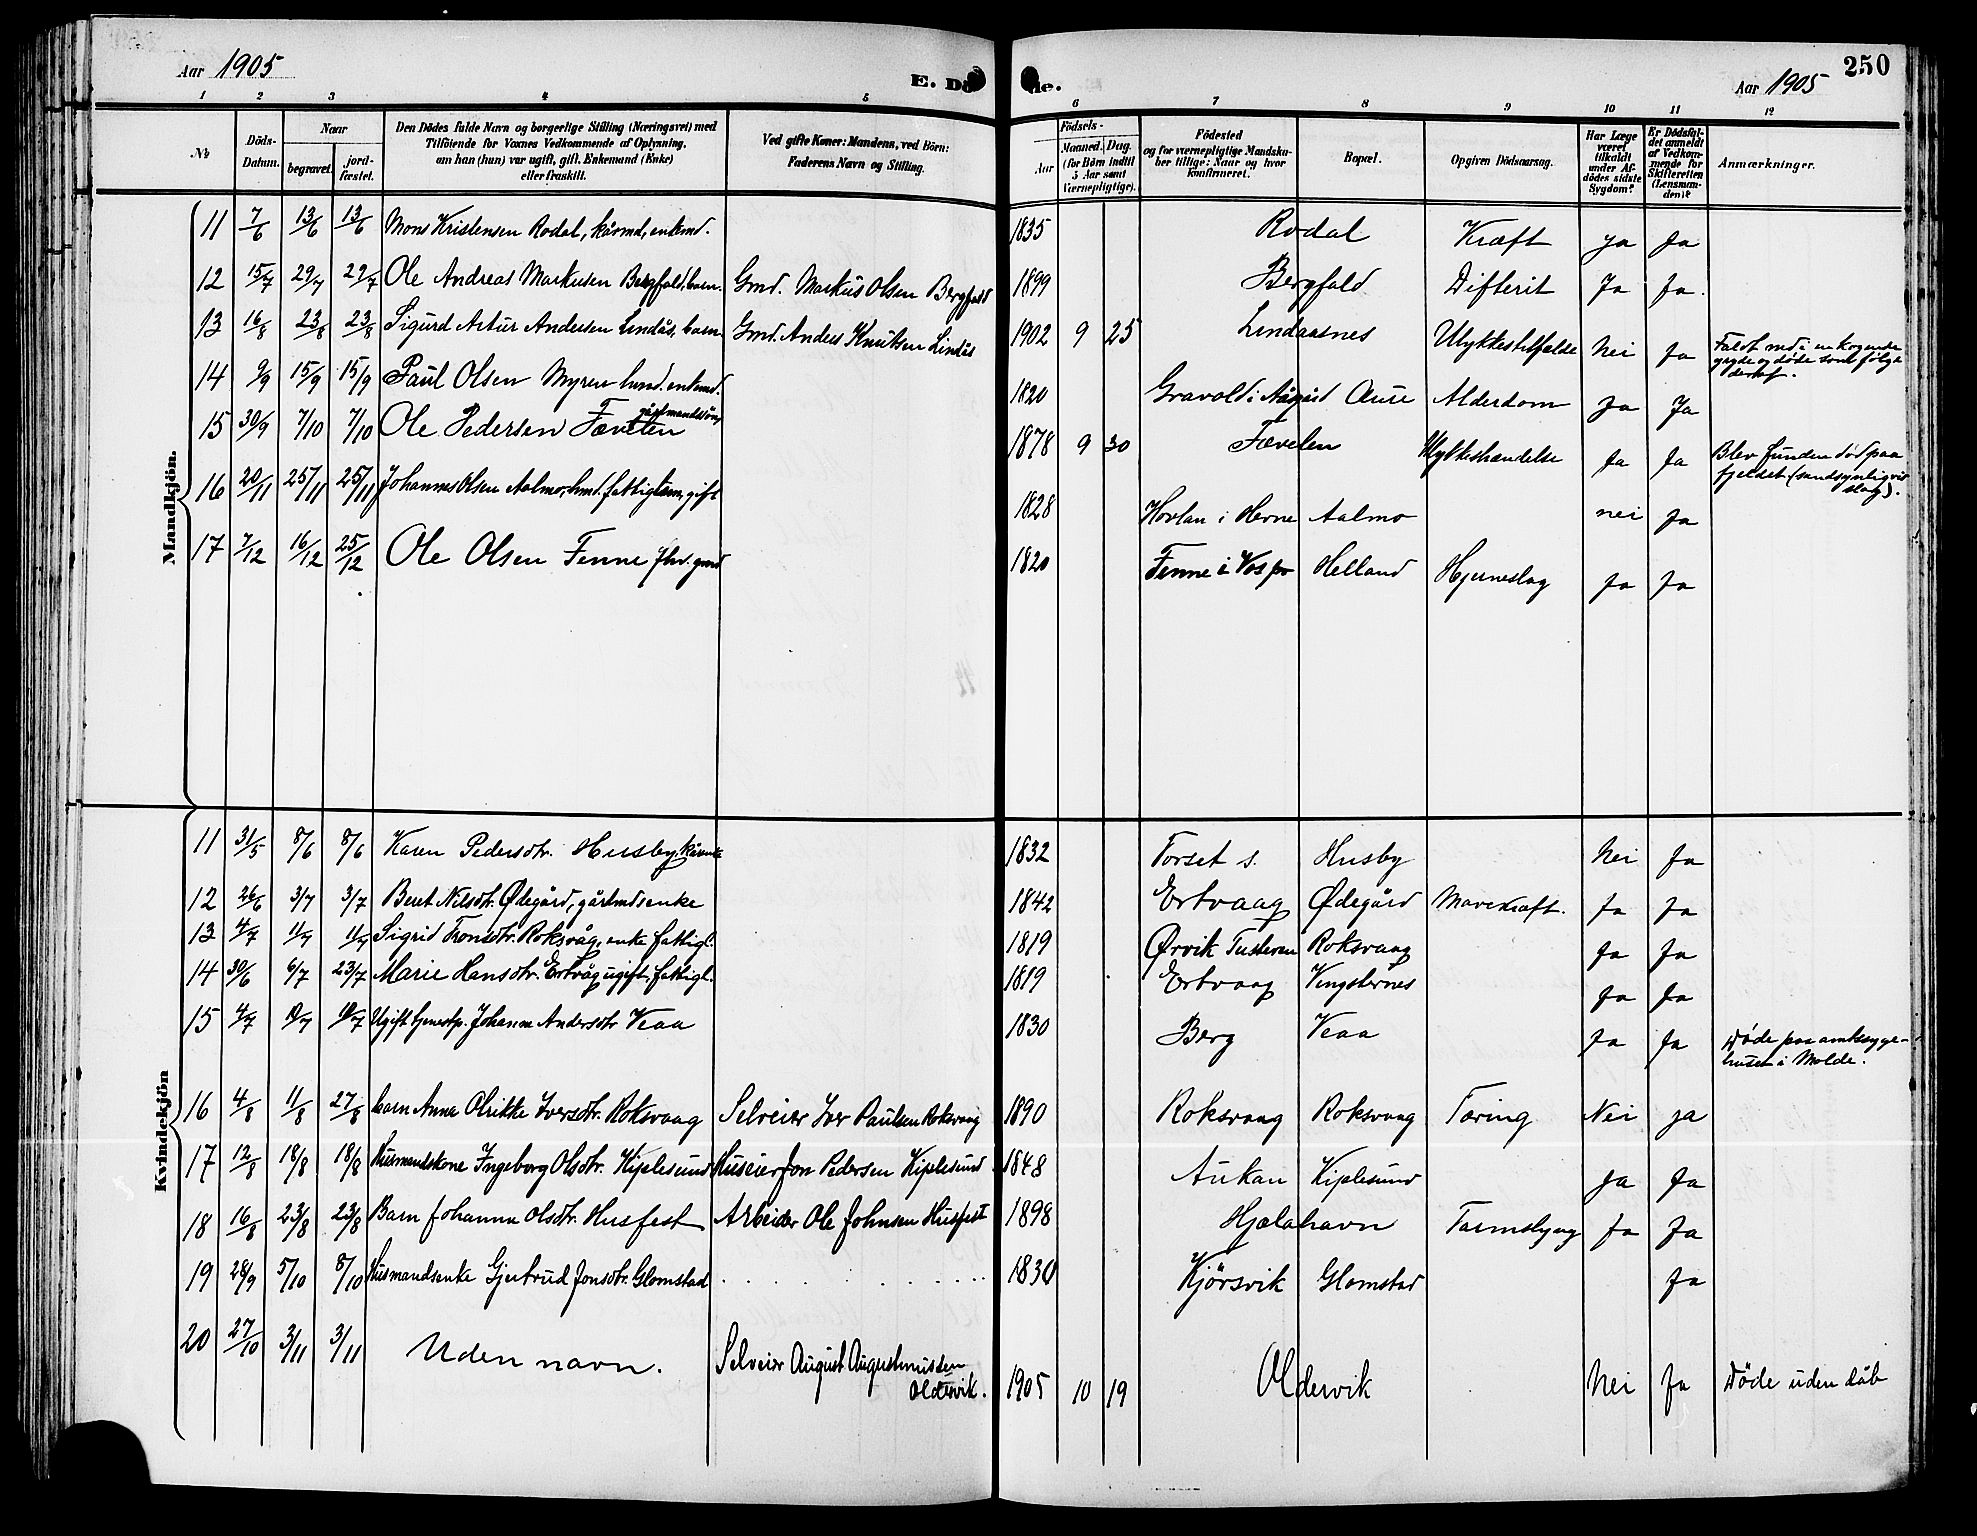 Aar 1905
E. Dö de.
Aar 1905
250
1 2 3 4 5 6 7 8 9 10 11 12
No
Döds-Datum.
Naar
begravet. jord-fæstet.
Den Dödes fulde Navn og borgerlige Stilling (Næringsvei) med
Tilföiende for Voxnes Vedkommende af Oplysning,
om han (hun) var ugift, gift, Enkemand (Enke)
eller fraskilt.
Ved gifte Koner: Mandens, ved Börn:
Faderens Navn og Stilling.
Födsels-
Aar Maaned. Dag.
(for Börn indtil
5 Aar samt
Værnepligtige).
Födested
og for værnepligtige Mandska-
ber tillige: Naar og hvor
konfirmeret.
Bopæl.
Opgiven Dödsaarsag.
Har Læge
været
tilkaldt
under Af-
dödes sidste
Sygdom?
Er Dödsfal-
det anmeldt
af Vedkom-
mende for
Skifteretten
(Lensman-
den)?
Anmærkninger.
Mandkjön.
11 7/6 13/6 13/6 Mons Kristensen Rodal, kårmd, enkemd. 1835 Rodal Kræft ja Ja
12 15/7 29/7 29/7 Ole Andreas Markusen Bergfald, barn. Gmd. Markus Olsen Bergfald 1899 Bergfald Difterit Ja Ja.
13 16/8 23/8 23/8 Sigurd Artur Andersen Lindås, barn. Gmd. Anders Knutsen Lindås 1902 9 25 Lindaasnes Ulykkestilfælde Nei Ja Faldt ned i en kogende
gryde og døde som følge
deraf.
14 9/9 15/9 15/9 Paul Olsen Myren hmd. enkemd. 1820 Gravold i Aasgård Aure Alderdom Ja Ja
15 30/9 7/10 7/10 Ole Pedersen Fævelen gårdmandssøn 1878 9 30 Fævelen Ulykkeshændelse Ja Ja Blev funden død paa
fjeldet (sandsynligvis
slag).
16 20/11 25/11 25/11 Johannes Olsen Aalmo, hmd. fattiglem, gift 1828 Hovlan i Herne Aalmo nei Ja
17 7/12 16/12 25/12 Ole Olsen Fenne fhv. gmd 1820 Fenne i Vos Helland Hjerneslag Ja Ja
Kvindekjön
11 31/5 8/6 8/6 Karen Pedersdtr. Husby, kårenke 1832 Torset s. Husby Nei Ja
12 26/6 3/7 3/7 Beret Nilsdtr. Ødegård, gårdmdsenke 1842 Ertvaag Ødegård Mavekræft. Ja Ja
13 4/7 11/7 11/7 Sigrid Tronsdtr. Roksvåg, enke fattigl. 1819 Ørvik Tusteren Roksvaag Ja Ja
14 30/6 6/7 23/7 Marie Hansdtr. Ertvåg ugift, fattigl. 1819 Ertvaag Vingsternes Ja Ja
15 4/7 Ugift tjenestp. Johanne Andersdtr Veaa 1830 Berg Veaa Ja Ja Døde paa amtssyge-
huset i Molde.
16 4/8 11/8 27/8 barn Anne Olrikke Iversdtr. Roksvaag Selveier Iver Paulsen Roksvaag 1890 Roksvaag Roksvaag Tæring Nei ja
17 12/8 18/8 18/8 Husmandskone Ingeborg Olsdtr. Kiplesund Huseier Jon Pedersen Kiplesund 1848 Aukan Kiplesund Ja Ja
18 16/8 23/8 23/8 Barn Johanna Olsdtr. Husfest Arbeider Ole Johnsen Husfest 1898 Hjelahavn Tarmslyng Ja Ja
19 28/9 5/10 8/10 Husmandsenke Gjertrud Jonsdtr. Glomstad 1830 Kjørsvik Glomstad Ja
20 27/10 3/11 3/11 Uden navn. Selveier August Augustinussen
Oldervik. 1905 10 19 Oldervik Nei Ja Døde uden dåb